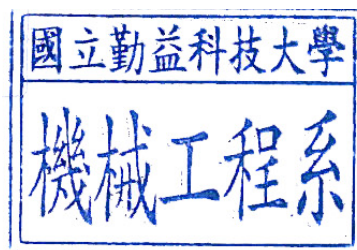 國立勤益科技大學
機械工程系